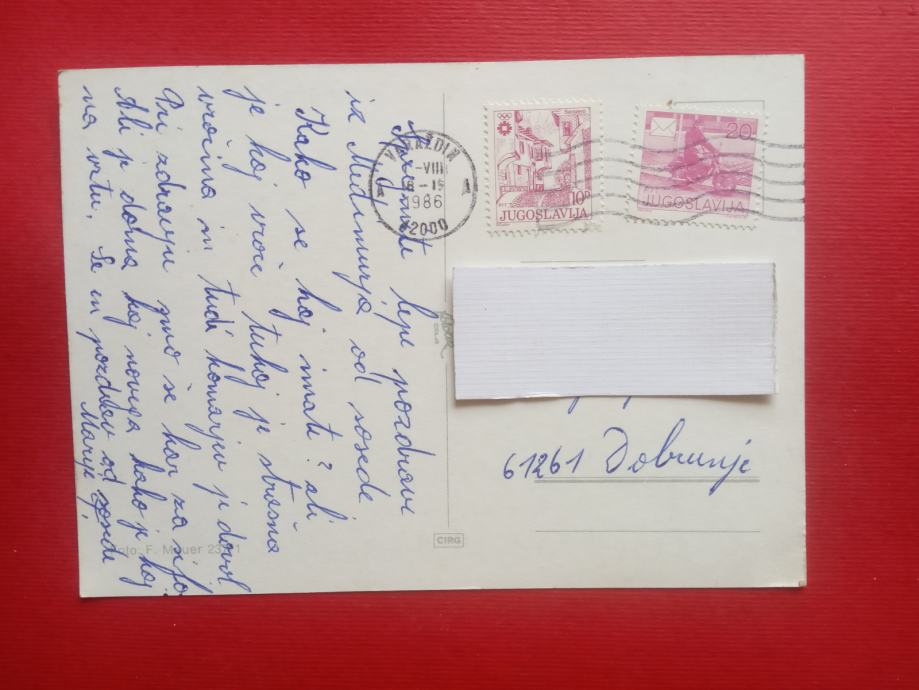 Prejmite lepe pozdrave
iz Međimurja od sosede
Kako se kaj imate? ali
je kaj vroče tukaj je strašna
vročina in tudi komarjev je dovolj
Pri zdravju smo še kar za silo
Ali je doma kaj novega kako je kaj
na vrtu. Še en pozdrav od sosede
Marije
VARAŽDIN
-VIII
1986
42000
JUGOSLAVIJA
10
20
JUGOSLAVIJA
61261 Dobrunje
CIRG
Foto: F. Mauer